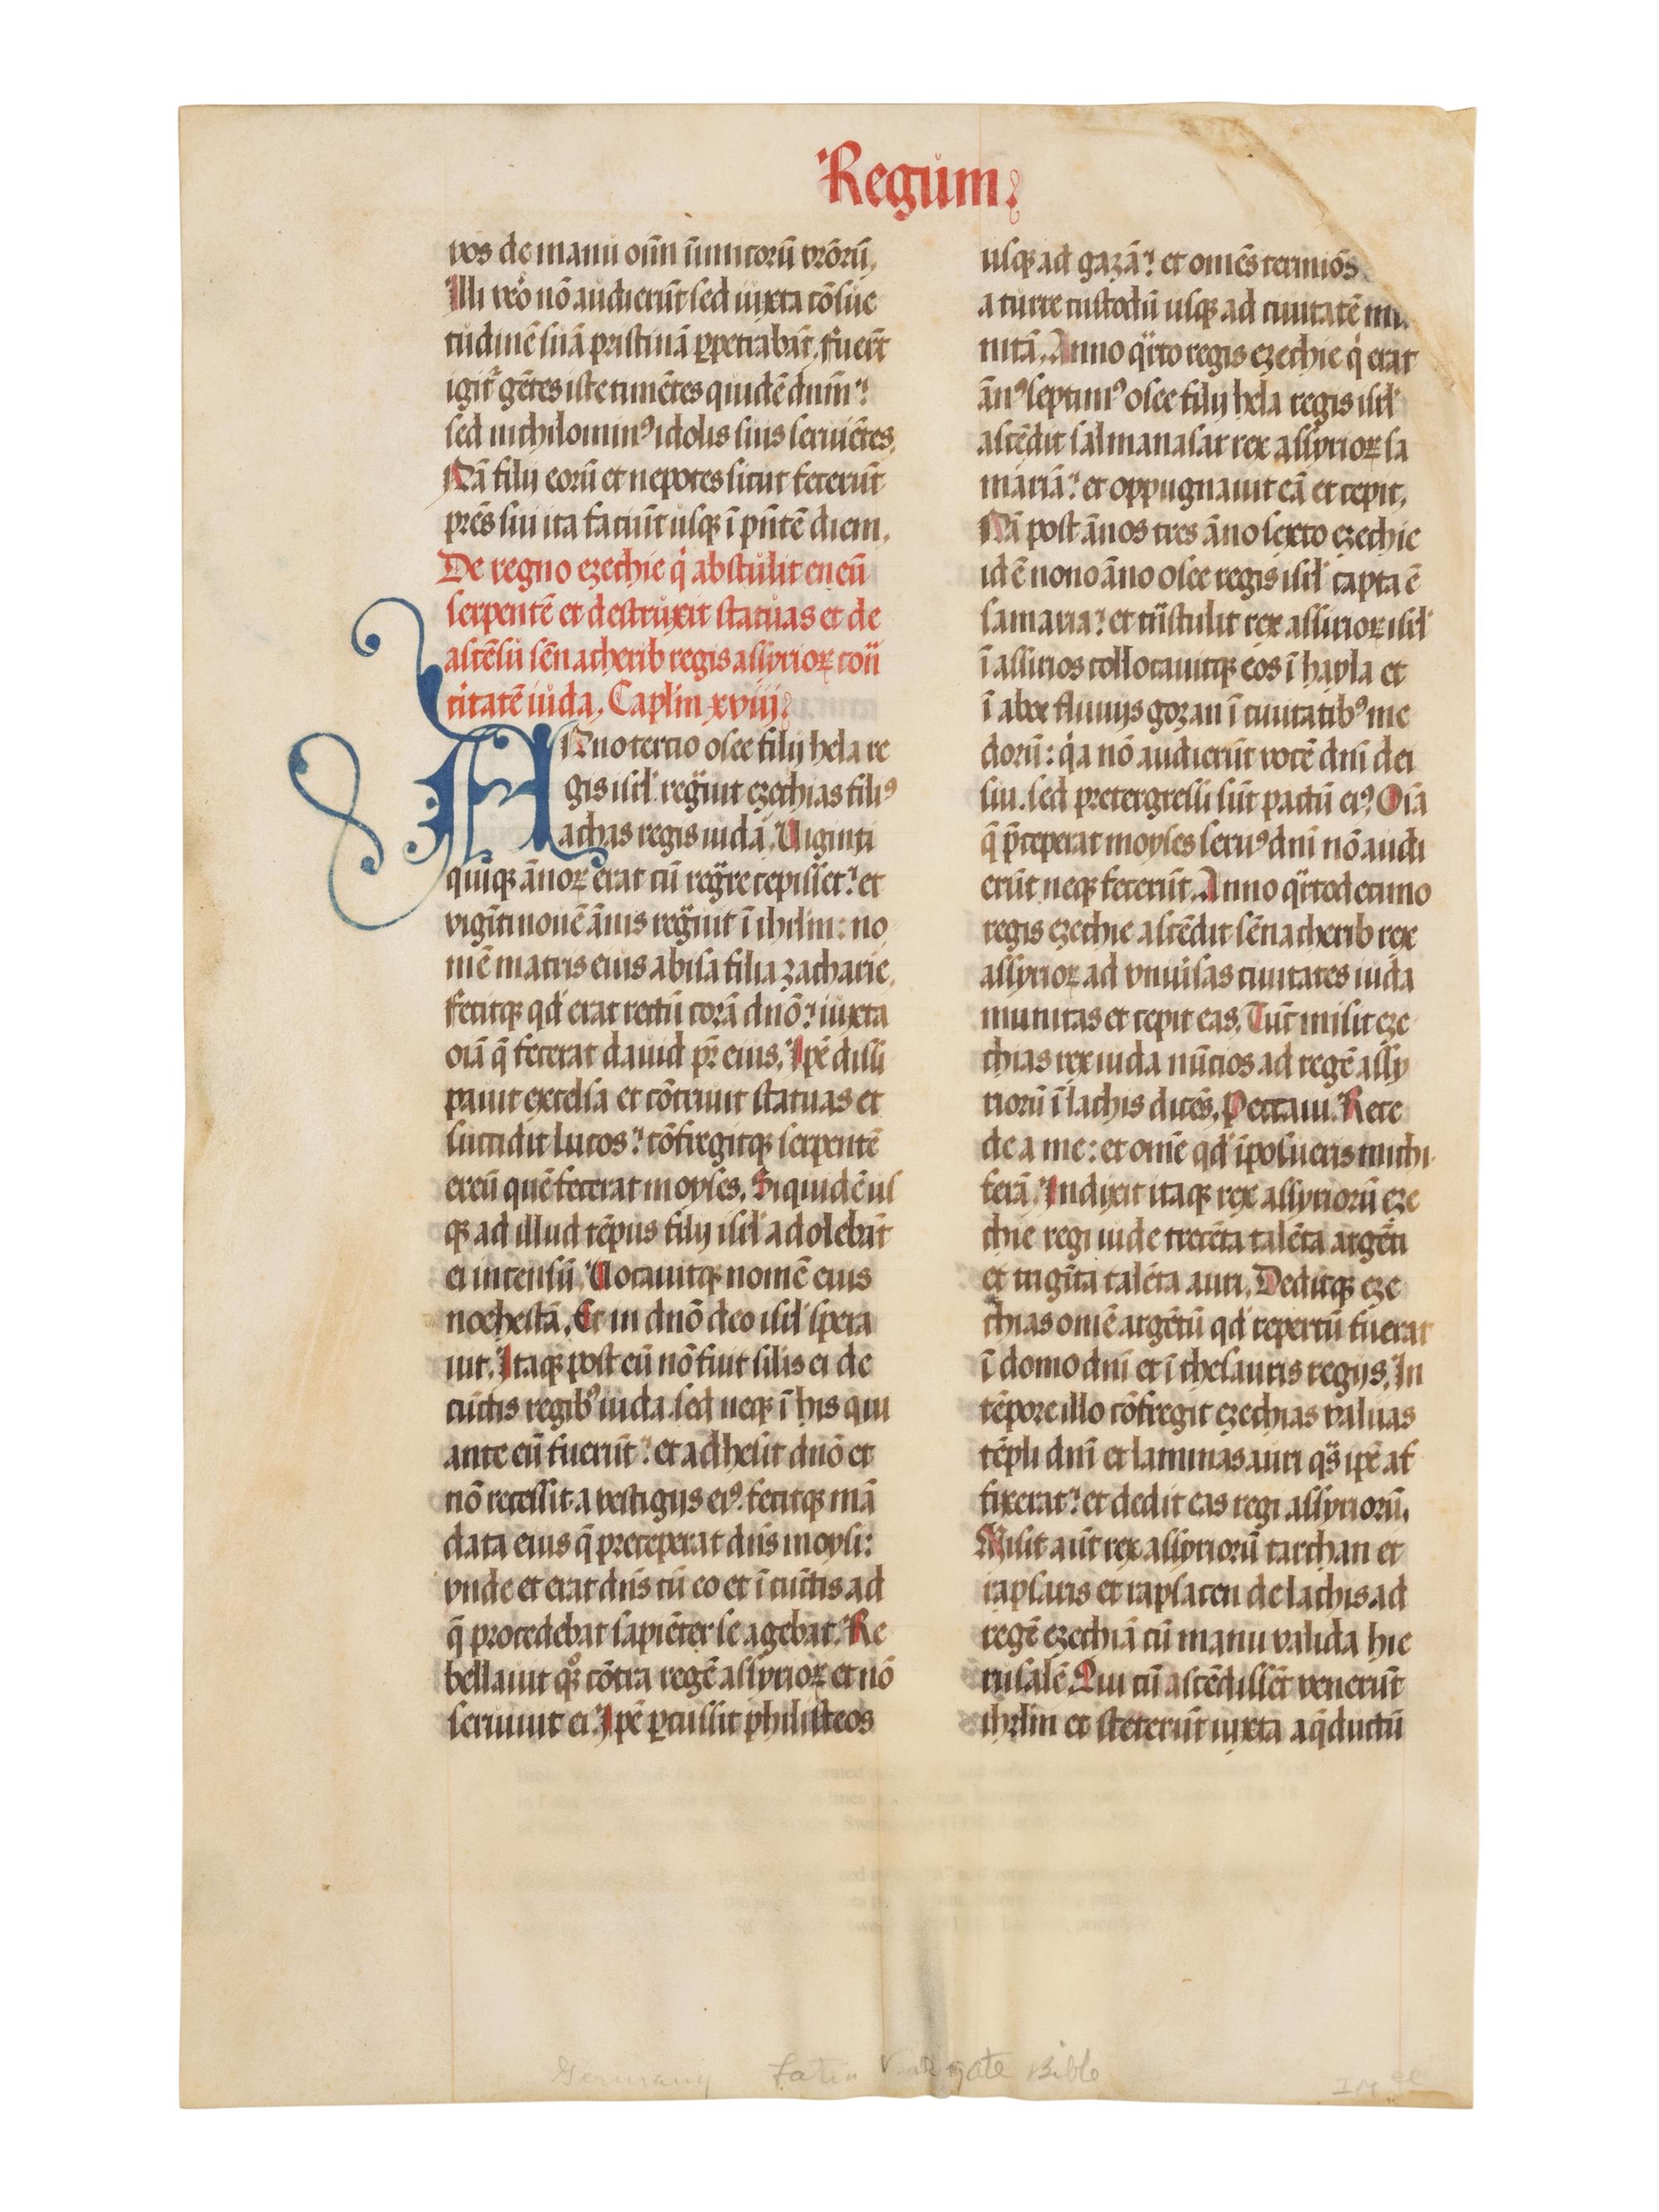 Regum.
vos de manu oīm īimicorū vr̄orū.
Illi vero nō audierūt sed iuxta cōsue
tudinē suā pristinā ꝑpetrabāt. fuer̄t
igit̄ gētes iste timētes quidē dnm̄:
sed nichilominꝰ idolis suis seruiētes.
Nā filij eorū et nepotes sicut fecerūt
pr̄es sui ita faciūt usqꝫ ī pn̄tē diem.
De regno ezechie qͥ abstulit eneū
serpentē et destruxit statuas et de
ascēsu sēnacherib regis assyrioꝝ cont̄
ciͥtatē iuda. Caplm̄ xviij.
ANno tercio osee filij hela re
gis isrl̄ regͣuit ezechias filiꝰ
achas regis iuda. Uiginti
quiqꝫ ānoꝝ erat cū regͣre cepisset: et
vigīti nouē ānis regͣuit ī ihrlm̄: no
mē matris eius abisa filia zacharie.
fecitqꝫ qd̄ erat rectū corā dnō: iuxta
oīa q̄ fecerat dauid pr̄ eius. Ip̄e dissi
pauit excelsa et cōtriuit statuas et
succidit lucos: cōfregitqꝫ serpentē
ereū quē fecerat moyses. Siquidē us
qꝫ ad illud tēpus filij isrl̄ adolebāt
ei incensū. Uocauitqꝫ nomē eius
noehestā. Et in dnō deo isrl̄ spera
uit. Itaqꝫ post eū nō fuit silis ei de
cūctis regibꝰ iuda. sed neqꝫ ī his qui
ante eū fuerūt: et adhesit dnō et
nō recessit a vestigijs eiꝰ. fecitqꝫ mā
data eius q̄ preceperat dn̄s moysi:
vnde et erat dn̄s cū eo et ī cūctis ad
q̄ procedebat sapiēter se agebat. Re
bellauit qͦqꝫ cōtra regē assyrioꝝ et nō
seruiuit ei. Ip̄e ꝑcussit philisteos
usqꝫ ad gazā: et omēs termiōs
a turre custodū usqꝫ ad ciuitatē mu
nitā. Anno qͣrto regis ezechie qͥ erat
ānꝰ septimꝰ osee filij hela regis isrl̄
ascēdit salmanasar rex assyrioꝝ sa
mariā: et oppugnauit eā et cepit.
Nā post ānos tres āno sexto ezechie
id ē nono āno osee regis isrl̄ capta ē
samaria: et trͣstulit rex assirioꝝ isrl̄
ī assirios collocauitqꝫ eos ī hayla et
ī abor fluuijs gozan ī ciuitatibꝰ me
dorū: qͥa nō audierūt vocē dnī dei
sui. sed pretergressi sūt pactū eiꝰ. Oīa
q̄ p̄ceperat moyses seruꝰ dnī nō audi
erūt neqꝫ fecerūt. Anno qͣrtodecimo
regis ezechie ascēdit sēnacherib rex
assyrioꝝ ad vniūsas ciuitates iuda
munitas et cepit eas. Tūc misit eze
chias rex iuda nūcios ad regē assy
riorū ī lachis dicēs. Peccaui. Rece
de a me: et omē qd̄ īposueris michi
ferā. Indixit itaqꝫ rex assyriorū eze
chie regi iude trecēta talēta argēti
et trigīta talēta auri. Deditqꝫ eze
chias omē argētū qd̄ repertū fuerat
ī domo dnī et ī thesauris regijs. In
tēpore illo cōfregit ezechias valuas
tēpli dnī et laminas auri qͣs ip̄e af
fixerat: et dedit eas regi assyriorū.
Misit aūt rex assyriorū tarchan et
rapsaris et rapsacen de lachis ad
regē ezechiā cū manu valida hie
rusalē. Qui cū ascēdissēt venerūt
ihrlm̄ et steterūt iuxta aq̄ductū
Germany Latin Vulgate Bible